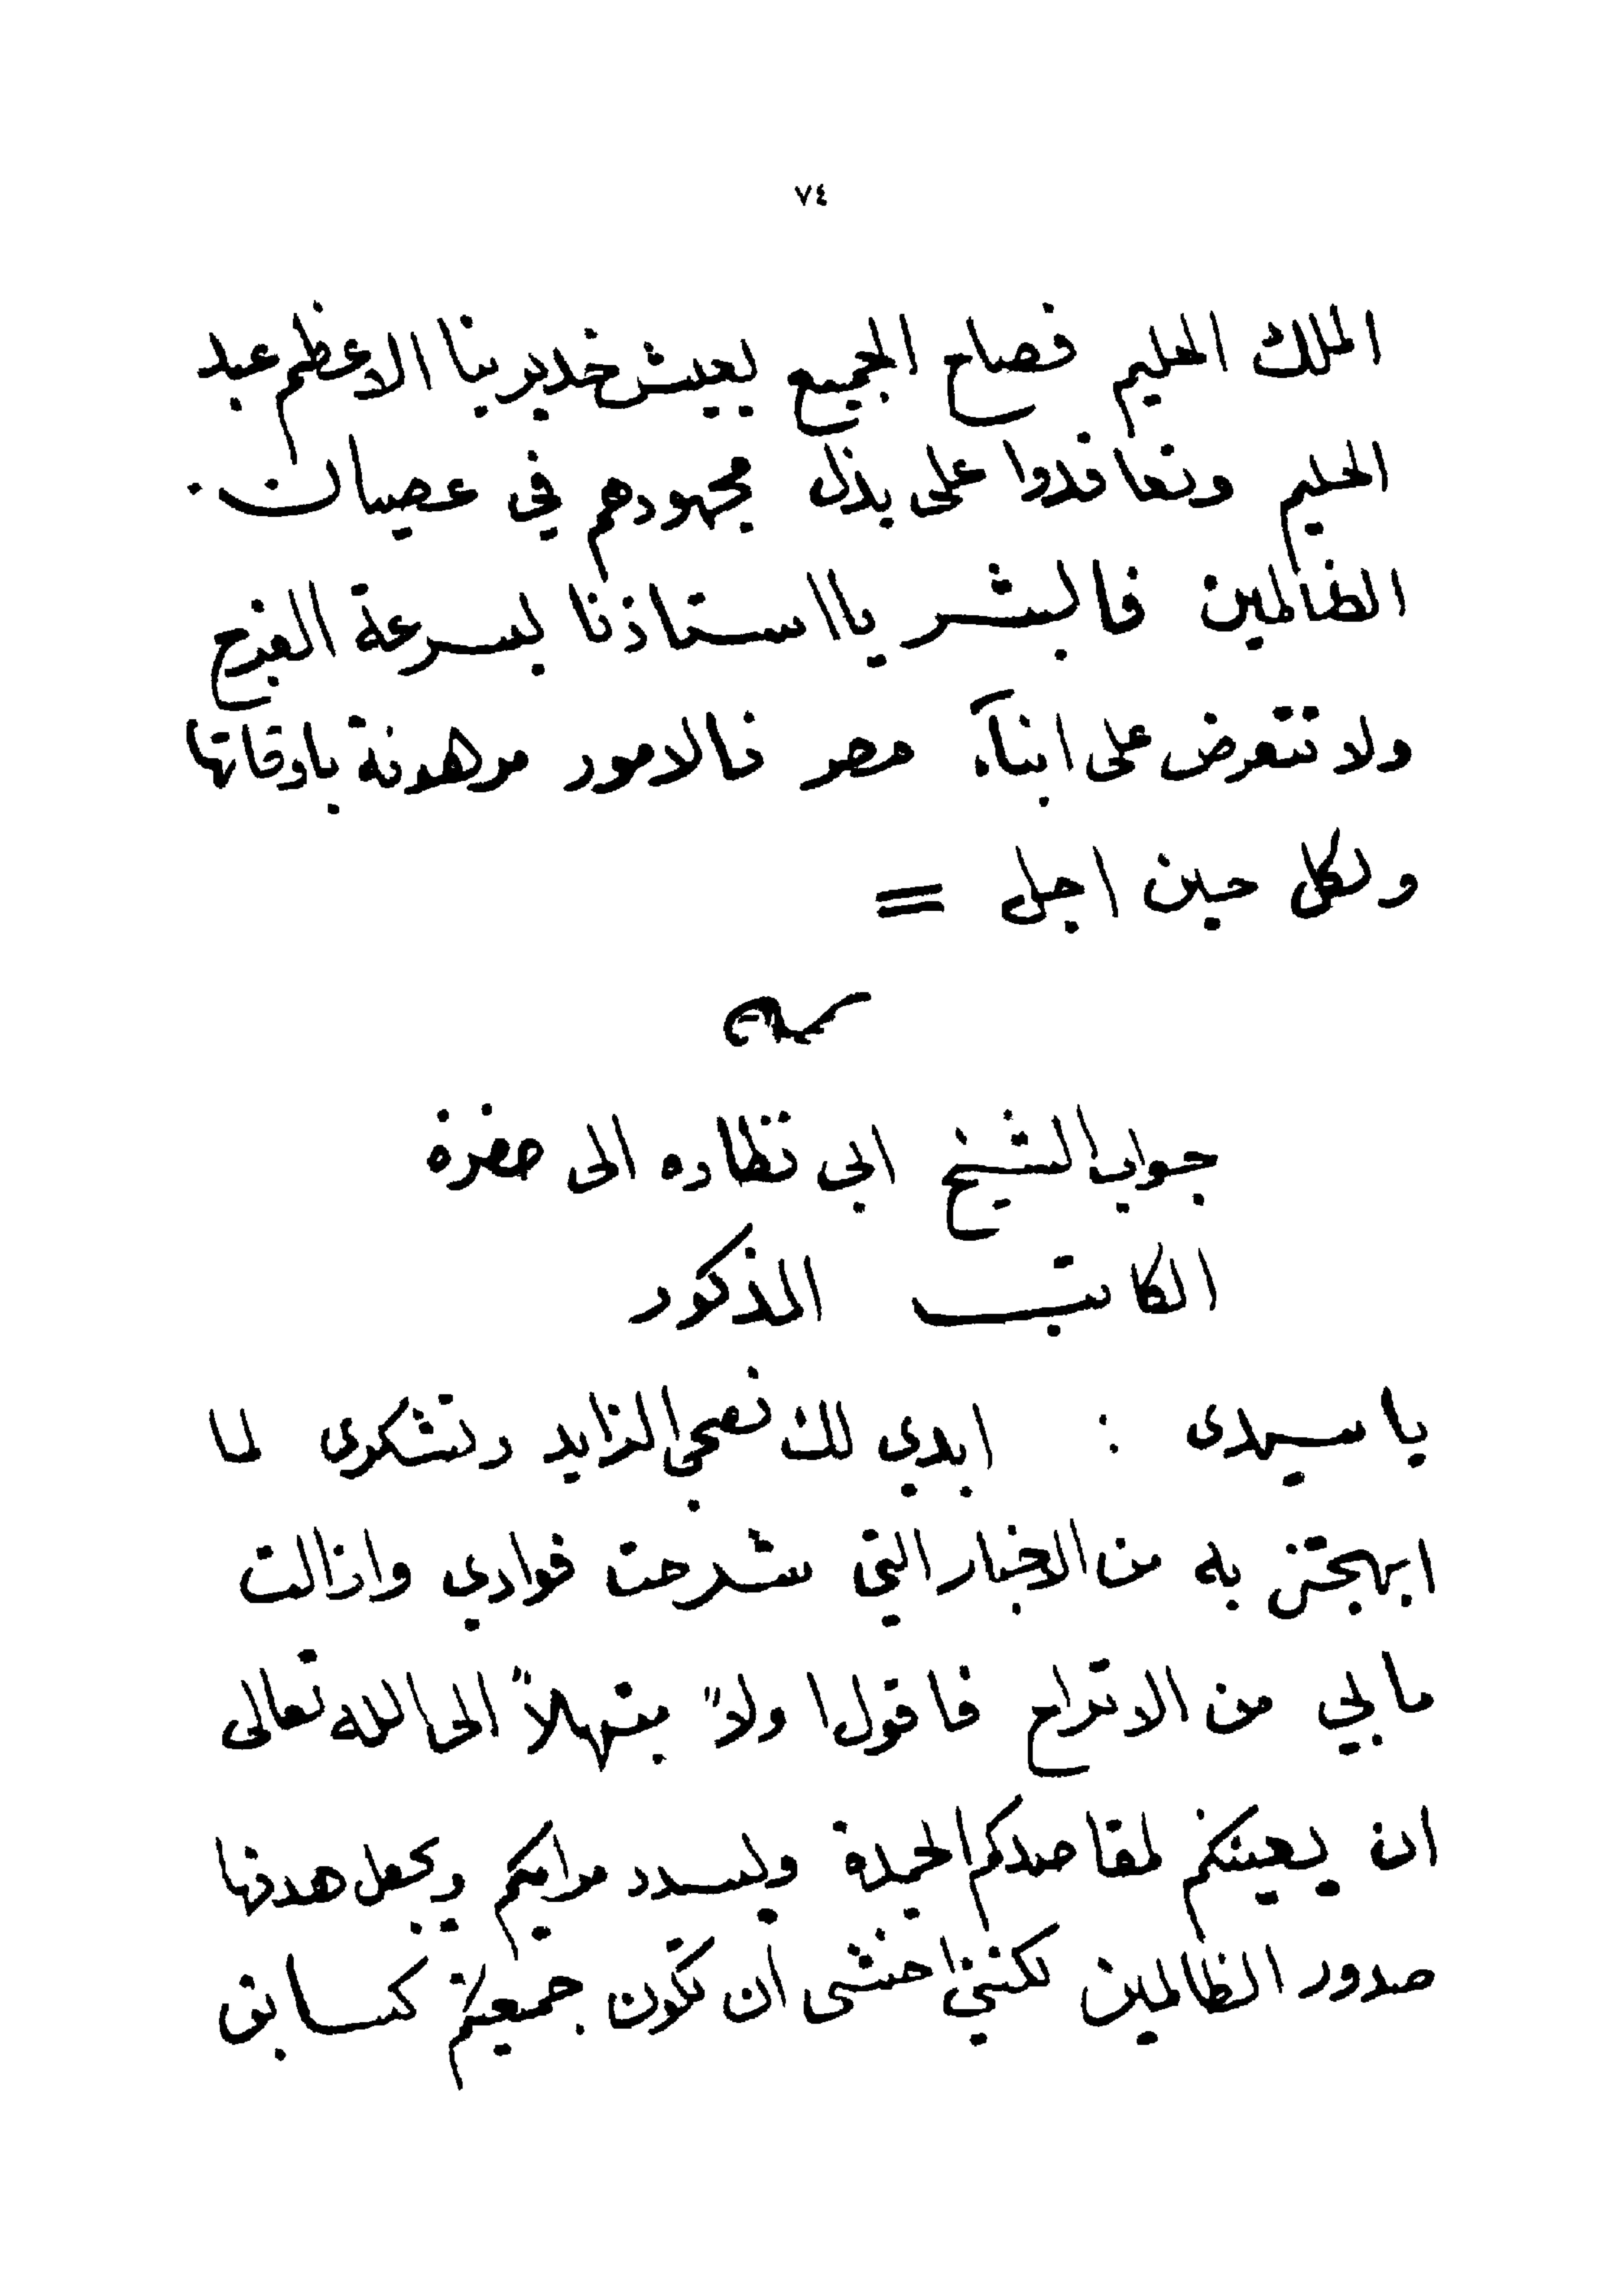 ٧٤
الملك الحليم فصاح الجميع ليعيش خديوينا الاعظم عبد
الحليم وتعاقدوا على بذل مجهودهم في عصيان
الظالمين فالبشر يا استاذنا لبسرعة الفرج
ولا تتعرض على ابنآء مصر فالامور مرهونة باوقاتها
ولكل حين اجل =
جواب الشيخ ابي نظاره الى حضرة
الكاتب المذكور
يا سيدى : ابدي لك نصحي الزايد وتشكرى لما
ابهجتنى به من الاخبار التي شرحت فوادي وازالت
ما بي من الاتراح فاقول اولاً مبتهلاً الى الله تعالى
ان يعينكم لمقاصدكم الحميدة وليسدد مراميكم ويجعل هدفها
صدور الظالمين لكنني اخشى ان تكون جمعيتكم كسابق